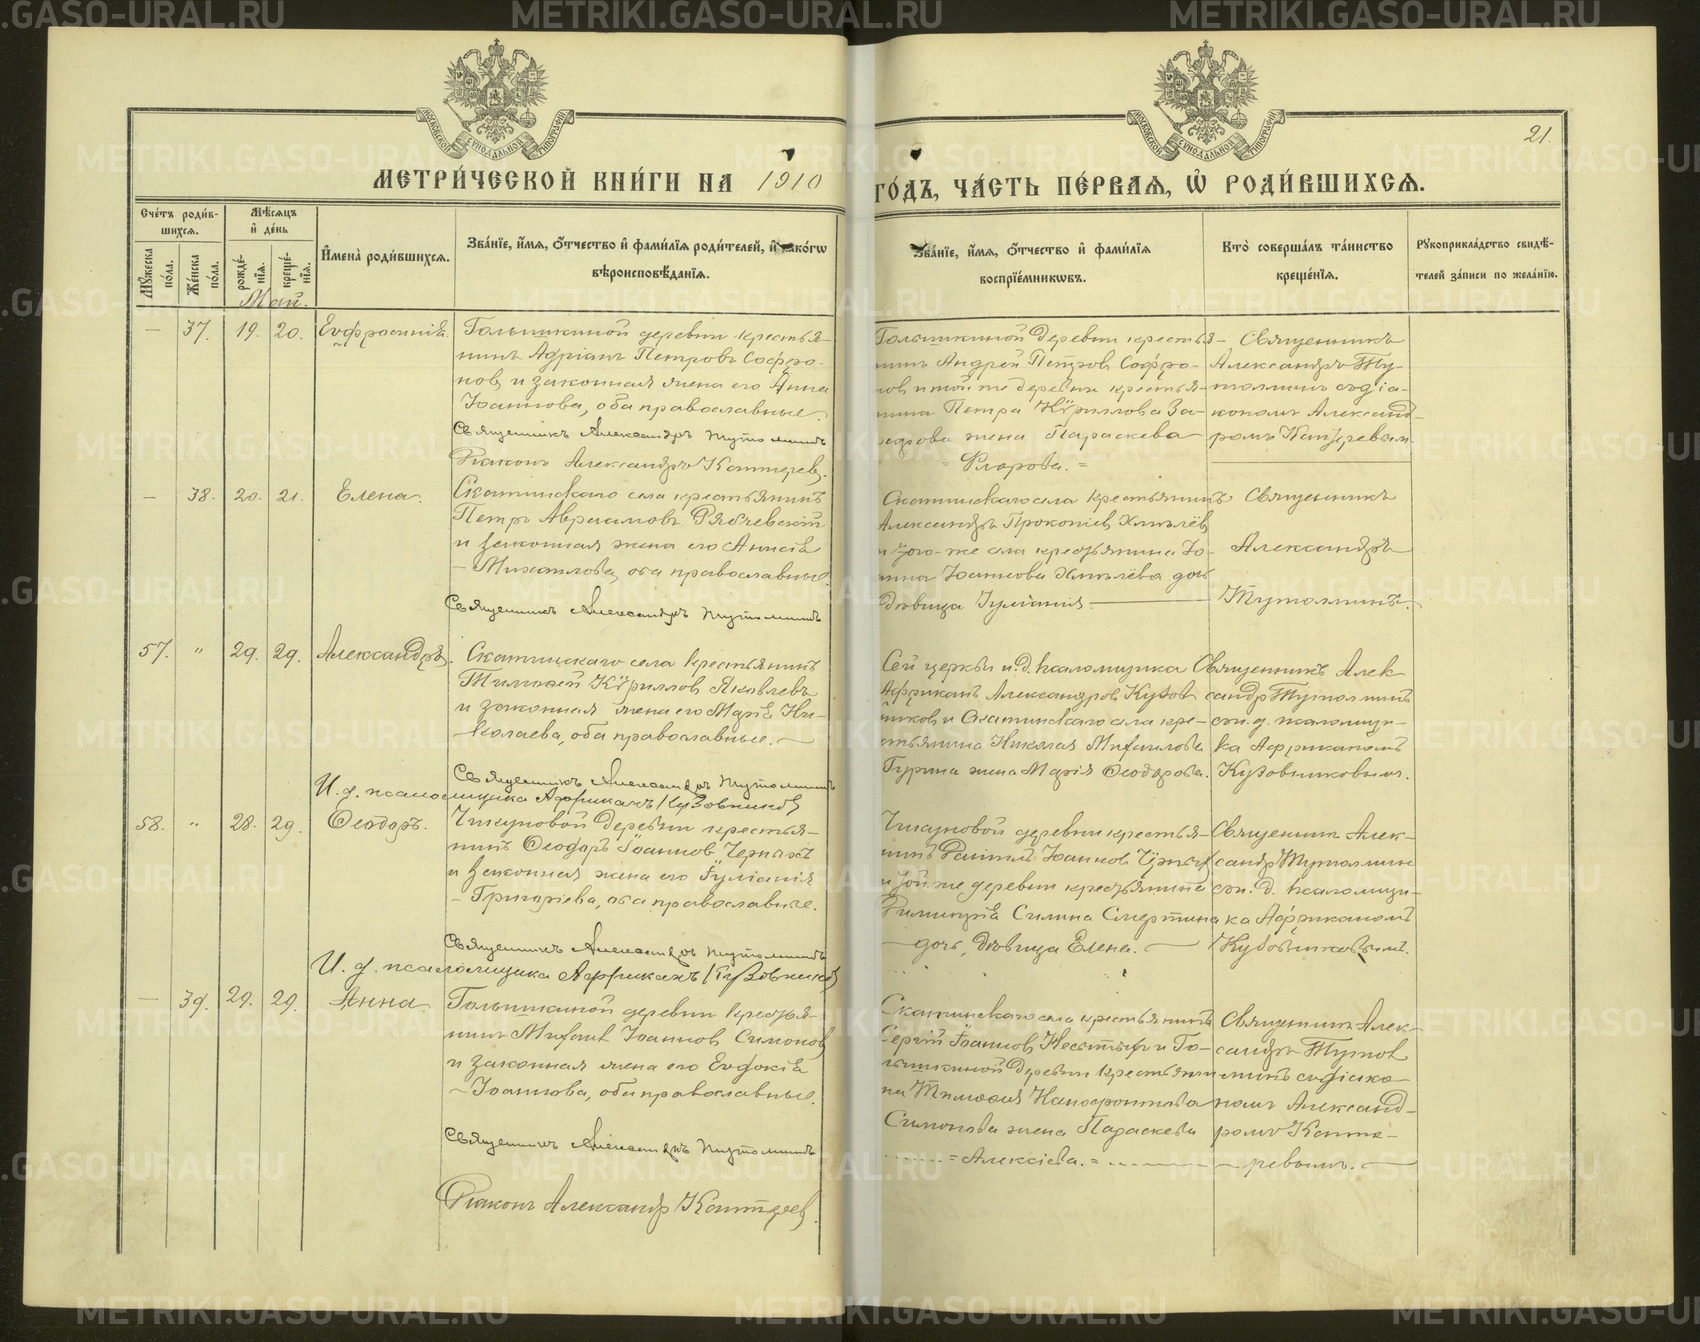 МЕТРИ́ЧЕСКОЙ КНИ́ГИ НА 1910
ГО́ДЪ, ЧА́СТЬ ПЕ́РВАЯ, Ѡ҆ РОДИ́ВШИХСѦ.
21.
МОСКОВСКОЙ СѴНОДАЛЬНОЙ ТИПОГРАФІИ
МОСКОВСКОЙ СѴНОДАЛЬНОЙ ТИПОГРАФІИ
Сче́тъ роди́вшихсѧ.
Мꙋ́жеска по́ла.
Же́нска по́ла.
Мѣ́сѧцъ и҆ де́нь
рожде́нїѧ.
креще́нїѧ.
И҆мена̀ роди́вшихсѧ.
Зва́нїе, и҆́мѧ, ѻ҆́тчество и҆ фами́лїѧ роди́телей, и҆ како́гѡ
вѣроисповѣ́данїѧ.
Зва́нїе, и҆́мѧ, ѻ҆́тчество и҆ фами́лїѧ
воспрїе́мникѡвъ.
Кто̀ соверша́лъ та́инство
креще́нїѧ.
Рꙋкоприкла́дство свидѣ́-
телей за́писи по жела́нїю.
Май.
— 37. 19. 20. Евфросинія
Голышкиной деревни крестья-
нинъ Адріанъ Петровъ Софро-
новъ и законная жена его Анна
Іоаннова, оба православные.
Священникъ Александръ Тутолминъ
Діаконъ Александръ Коптяевъ.
Голышкиной деревни крестья-
нинъ Андрей Петровъ Софро-
новъ и той же деревни крестья-
нина Петра Кѵриллова
жена Параскева
= Флорова. =
Священникъ
Александръ Ту-
толминъ съ діа-
кономъ Александ-
ромъ
— 38. 20. 21. Елена.
Скатинскаго села крестьянинъ
Петръ Авраамовъ
и законная жена его Анисія
— Михаилова, оба православные.
Священникъ Александръ Тутолминъ
Скатинскаго села крестьянинъ
Александръ Прокопіевъ Хмѣлёвъ
и того-же села крестьянина Іо-
анна Іоаннова Хмѣлёва дочь
дѣвица Іуліанія —
Священникъ
Александръ
Тутолминъ.
57. " 29. 29. Александръ.
Скатинскаго села крестьянинъ
Тимоѳей Кѵрилловъ Яковлевъ
и законная жена его Марія Ни-
колаева, оба православные. —
Священникъ Александръ Тутолминъ
И. д. псаломщика Африканъ Кузовниковъ
Сей церкви и. д. псаломщика
Африканъ Александровъ Кузов-
никовъ и Скатинскаго села кре-
стьянина Николая Михаилова
Гурина жена Марія Ѳеодорова.
Священникъ Алек
сандръ Тутолминъ
съ и. д. псаломщи-
ка Африканомъ
Кузовниковымъ.
58. " 28. 29. Ѳеодоръ.
Чикуновой деревни крестья-
нинъ Ѳеодоръ Іоанновъ Черныхъ
и законная жена его Іуліанія
— Григоріева, оба православные.
Священникъ Александръ Тутолминъ
И. д. псаломщика Африканъ Кузовниковъ
Чикуновой деревни крестья-
нинъ Даніилъ Іоанновъ Черныхъ
и той же деревни крестьянина
Силина Смертина
— дочь, дѣвица Елена. —
Священникъ Алек-
сандръ Тутолминъ
съ и. д. псаломщи-
ка Африканомъ
Кузовниковымъ.
— 39. 29. 29. Анна.
Голышкиной деревни крестья-
нинъ Михаилъ Іоанновъ Симоновъ
и законная жена его Евдокія
— Іоаннова, оба православные.
Священникъ Александръ Тутолминъ
Діаконъ Александръ Коптяевъ.
Скатинскаго села крестьянинъ
Сергій Іоанновъ и Го-
лышкиной деревни крестьяни-
на Тимоѳея
Симонова жена Параскева
= Алексіева. =
Священникъ Алек-
сандръ Тутол
минъ съ діако-
номъ Александ-
ромъ